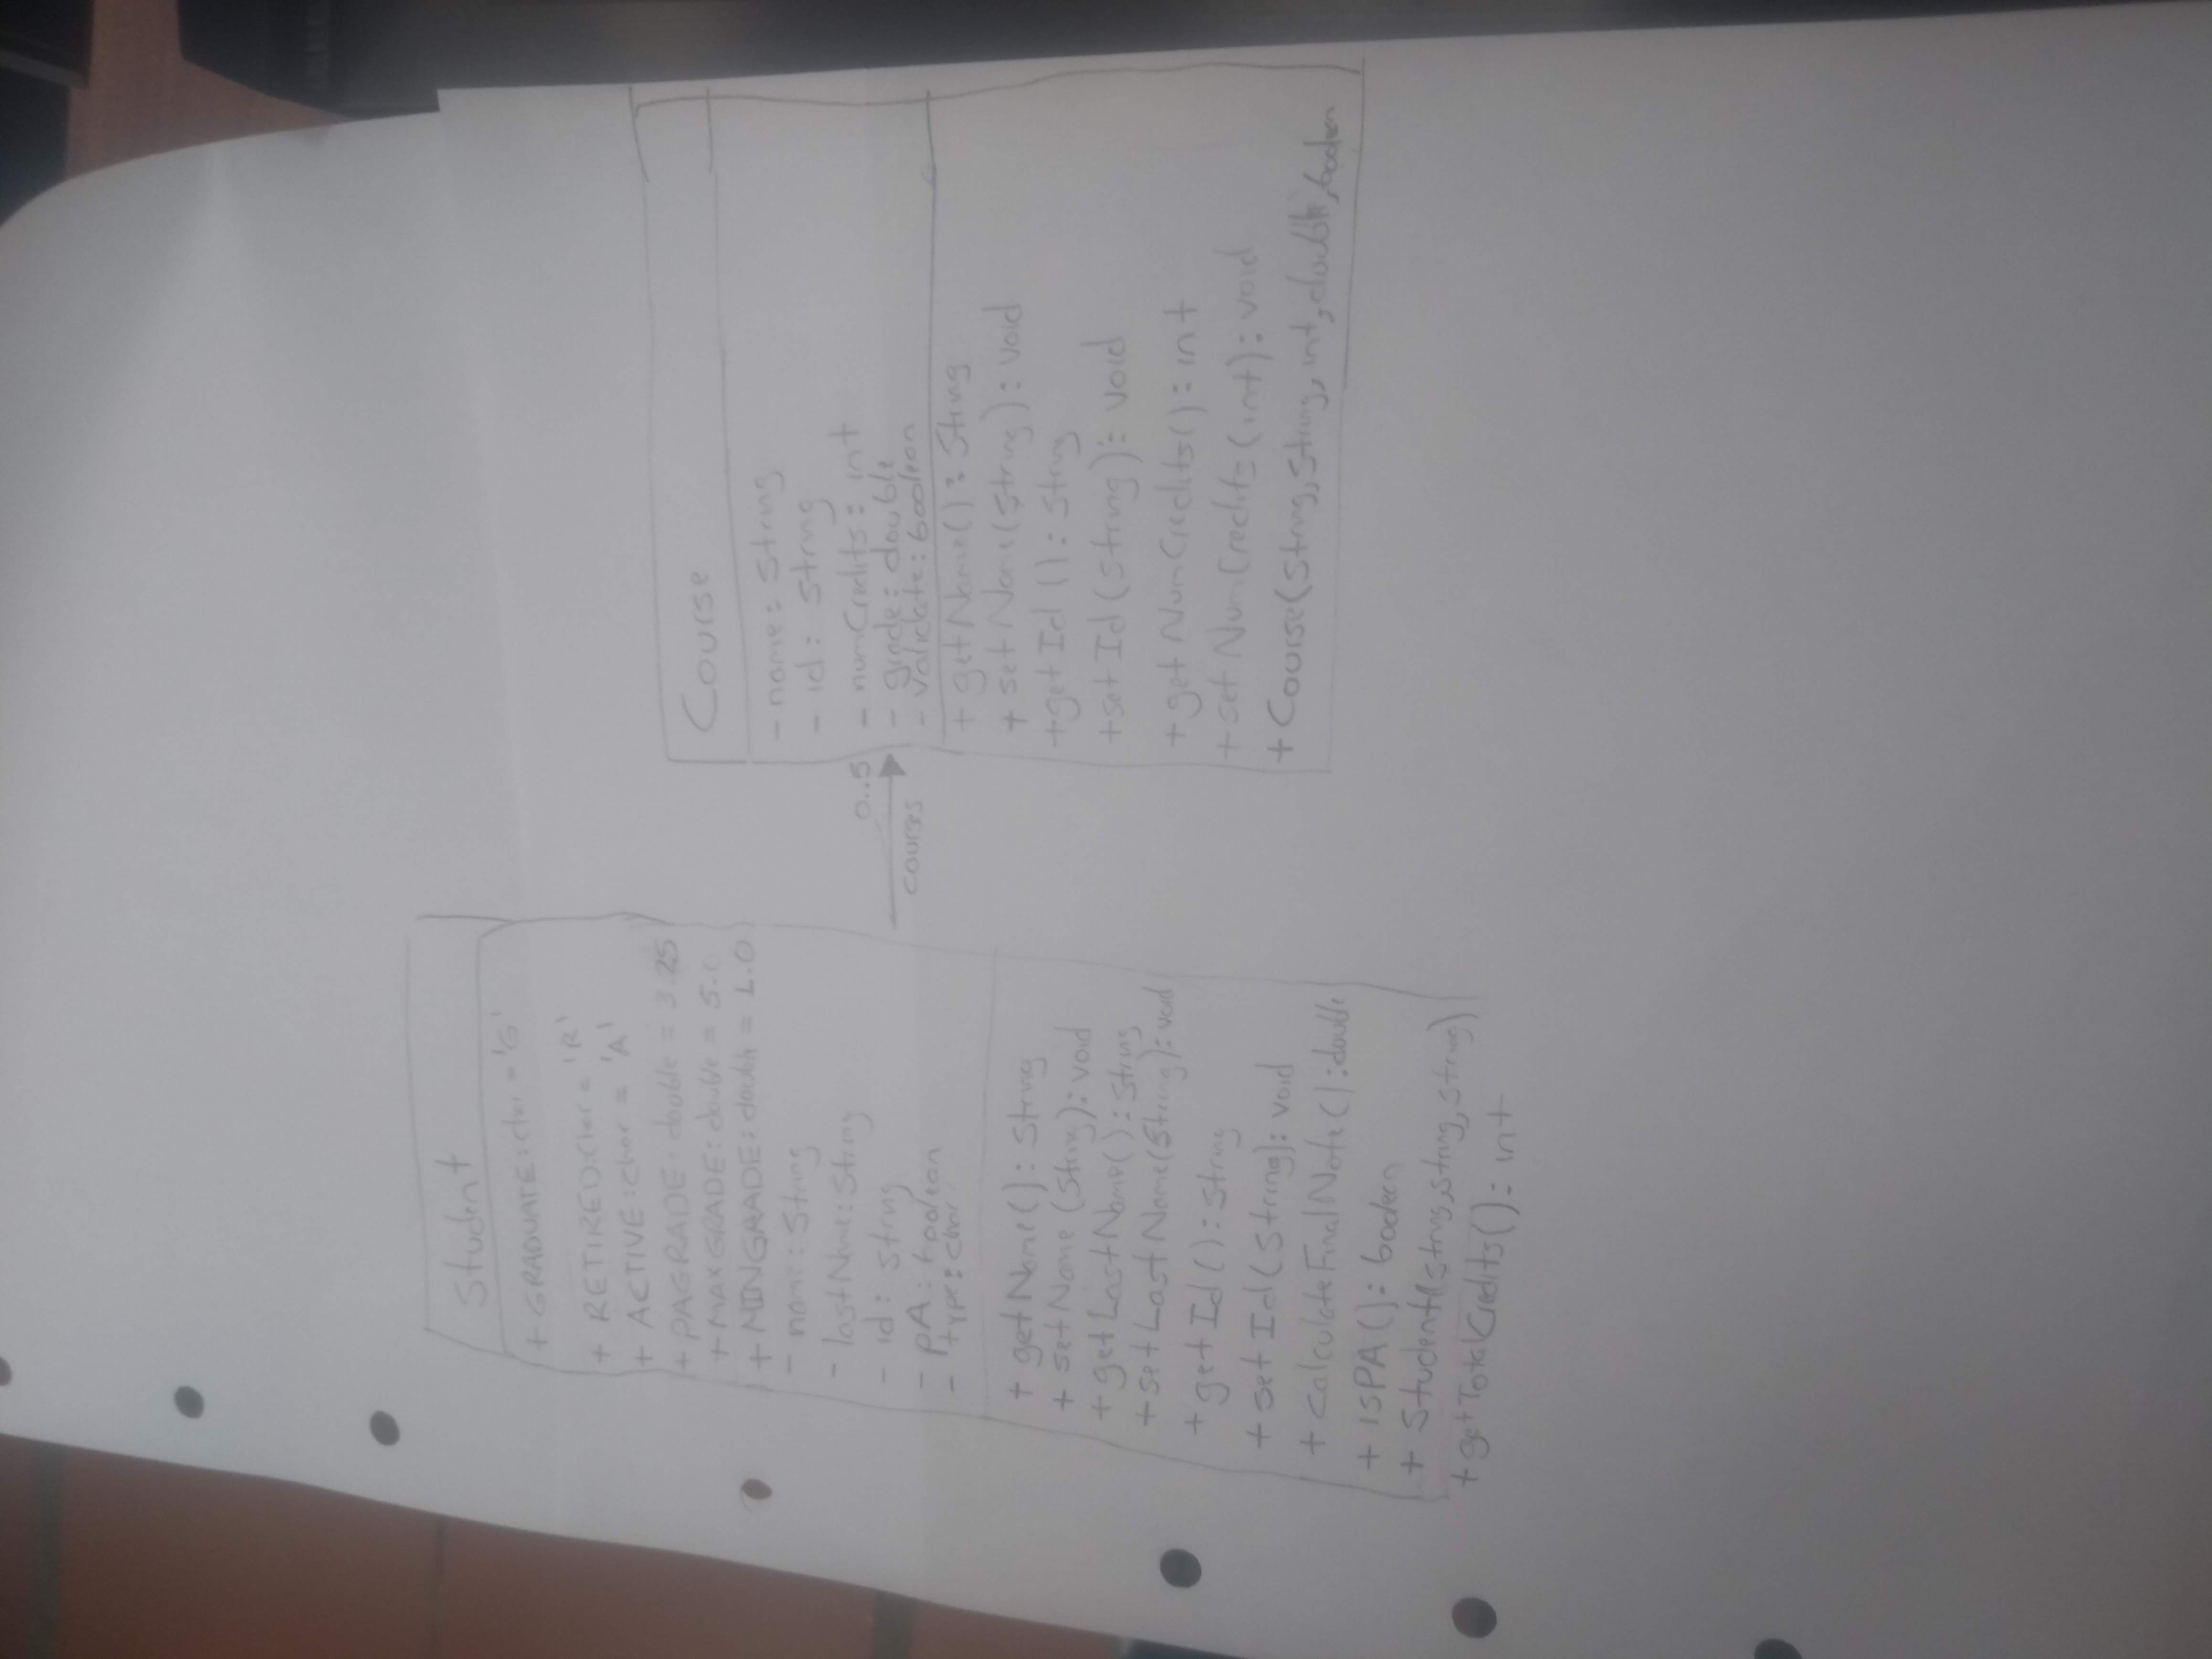 Student
+ GRADUATE: char = 'G'
+ RETIRED: char = 'R'
+ ACTIVE: char = 'A'
+ PAGRADE: double = 3.25
+ MAXGRADE: double = 5.0
+ MINGRADE: double = 1.0
- name: String
- lastName: String
- id: String
- pA: boolean
- type: char
+ getName(): String
+ setName (String): void
+ getLastName(): String
+ setLastName(String): void
+ getId(): String
+ setId(String): void
+ calculateFinalNote(): double
+ isPA(): boolean
+ Student(String, String, String)
+ getTotalCredits(): int
0..5
courses
Course
- name: String
- id: String
- numCredits: int
- grade: double
- validate: boolean
+ getName(): String
+ setName(String): void
+ getId(): String
+ setId(String): void
+ getNumCredits(): int
+ setNumCredits(int): void
+ Course(String, String, int, double, boolean